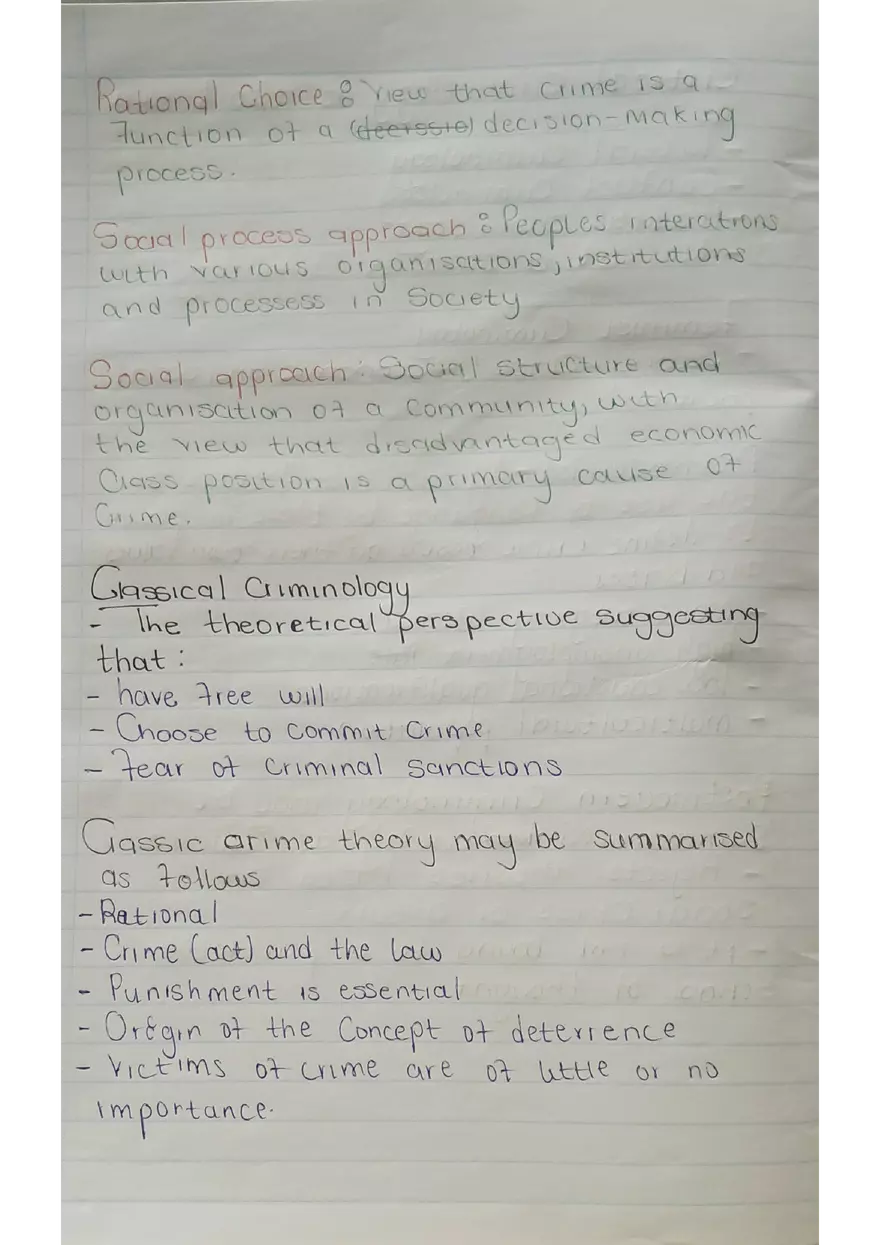 Rational Choice : View that crime is a
function of a (deerssie) decision-making
process.
Social process approach : Peoples interations
with various organisations, institutions
and processess in Society
Social approach : Social structure and
organisation of a community, with
the view that disadvantaged economic
Class position is a primary cause of
Crime.
Classical Criminology
- The theoretical perspective suggesting
that :
- have free will
- Choose to commit Crime
- Fear of Criminal Sanctions
Classic crime theory may be summarised
as follows
- Rational
- Crime (act) and the law
- Punishment is essential
- Origin of the Concept of deterrence
- Victims of crime are of little or no
importance.